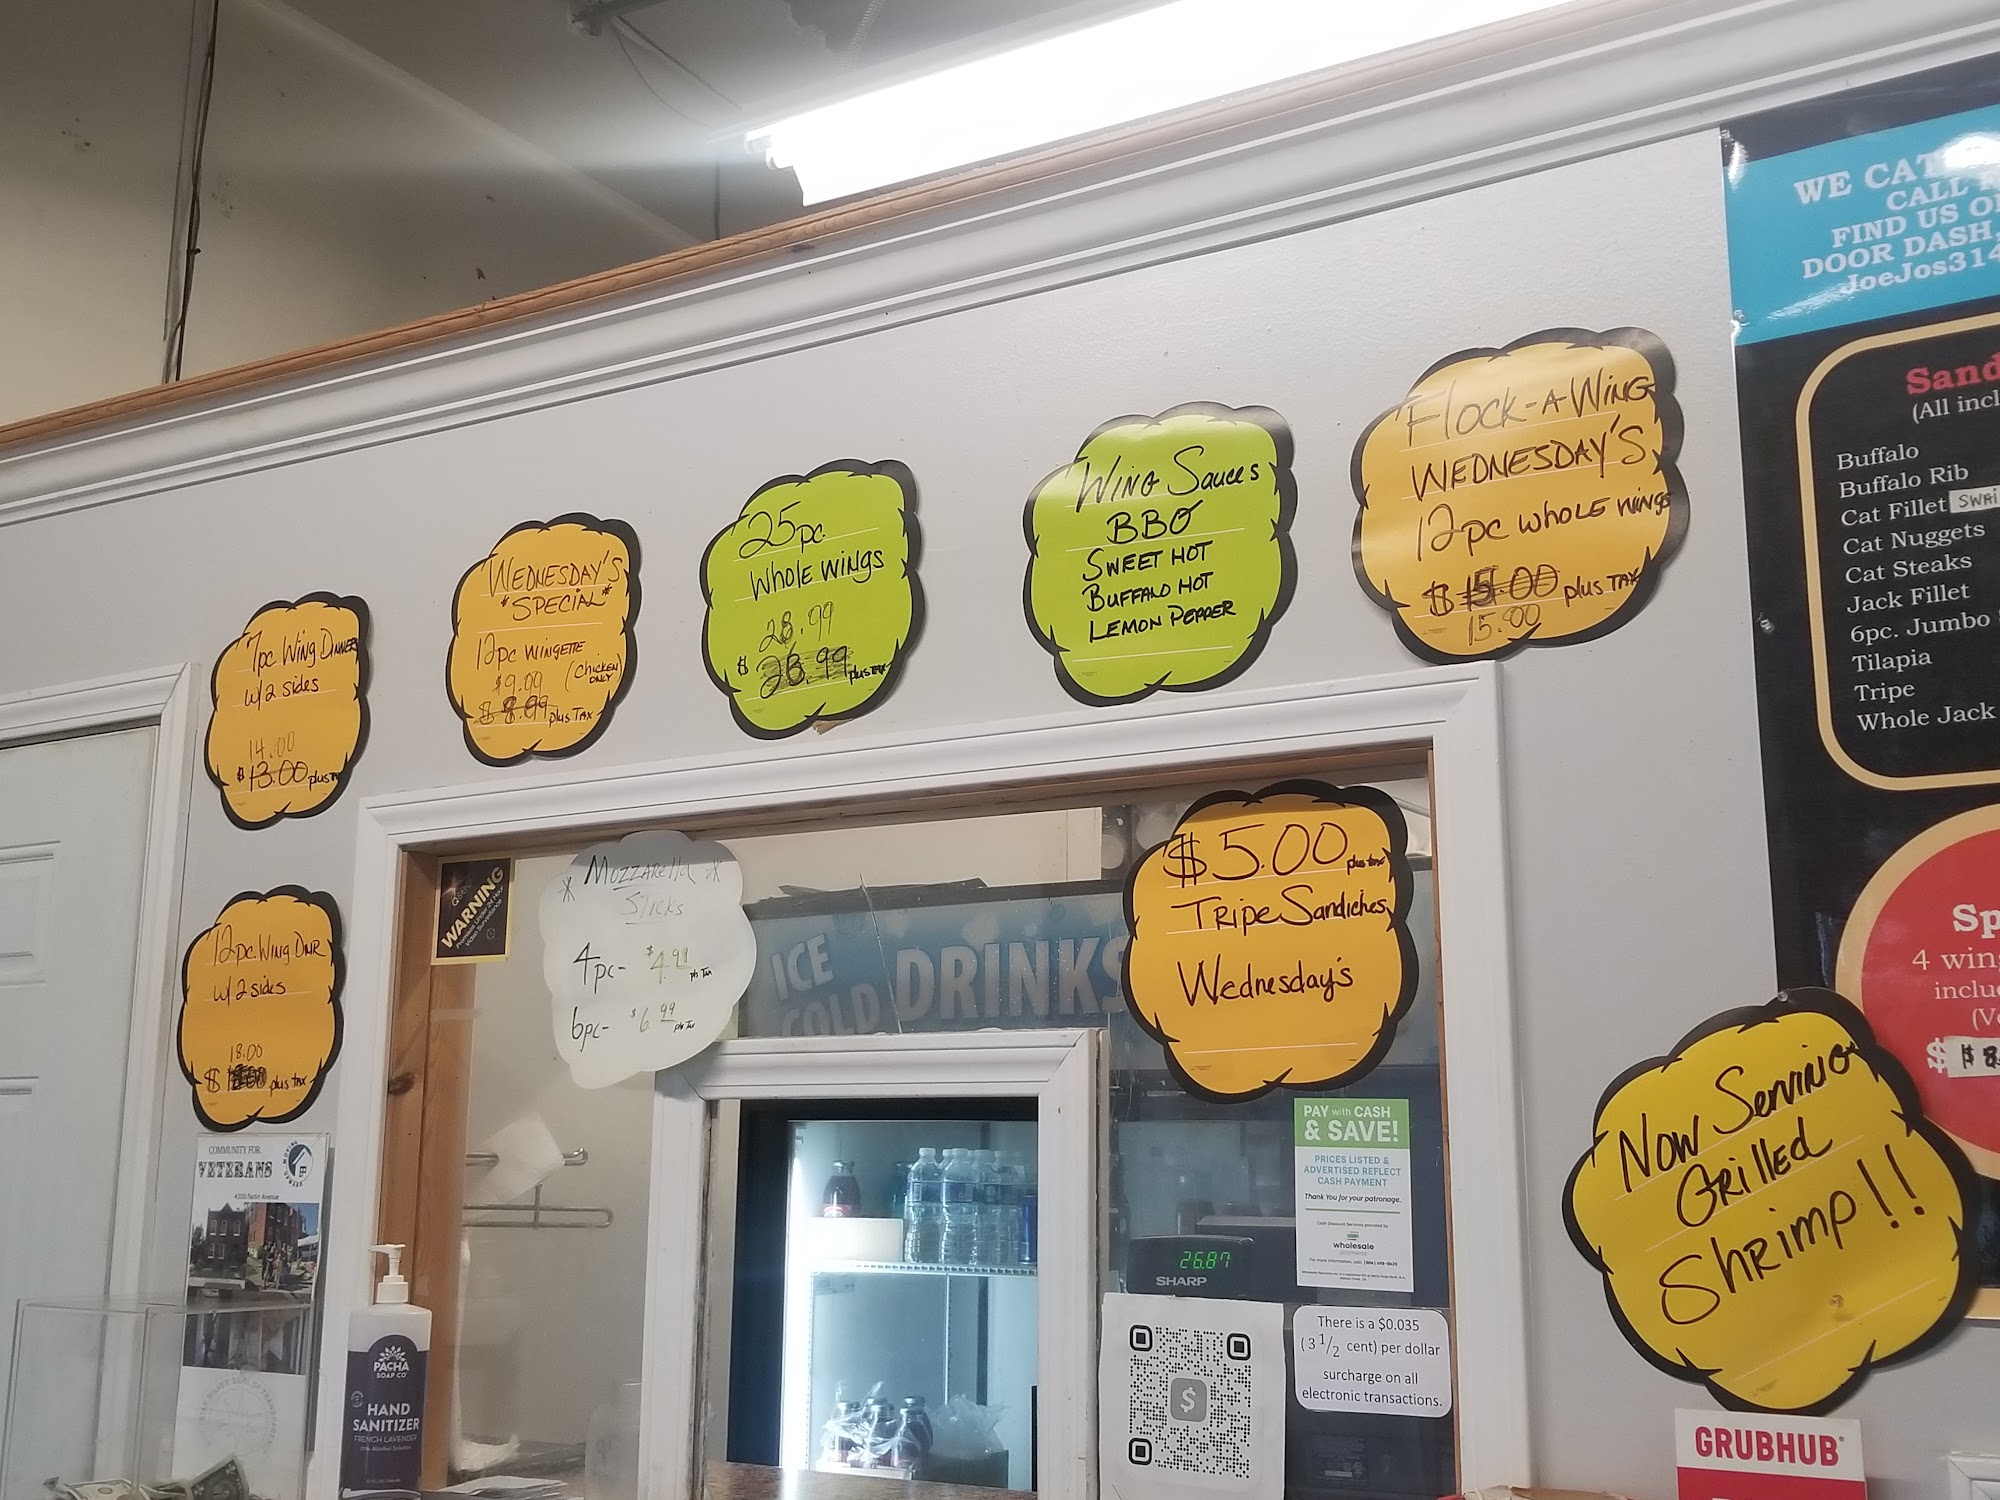 WE CAT
CALL
FIND US O
DOOR DASH,
JoeJos314
Sand
(All incl
Buffalo
Buffalo Rib
Cat Fillet SWAI
Cat Nuggets
Cat Steaks
Jack Fillet
6pc. Jumbo
Tilapia
Tripe
Whole Jack
Sp
4 wing
inclu
(V
$ $8
FLOCK-A-WING
WEDNESDAY'S
12pc WHOLE WINGS
$ 15.00 plus TAX
15.00
WING SAUCES
BBQ
SWEET HOT
BUFFALO HOT
LEMON PEPPER
25pc.
WHOLE WINGS
28.99
$ 26.99 plus TAX
WEDNESDAY'S
*SPECIAL*
12pc WINGETTE
(CHICKEN ONLY)
$9.09
$ 8.99 plus TAX
7pc WING DINNER
w/2 sides
14.00
$13.00 plus TAX
12pc. WING DNR
w/2 sides
18.00
$ plus TAX
* MOZZARELLA *
STICKS
4pc- $4.99 pls Tax
6pc- $6.99 pls Tax
$5.00 plus tax
TRIPE SANDICHES
WEDNESDAY'S
NOW SERVING
GRILLED
SHRIMP!!
WARNING
Premises Under 24 Hour
Video Surveillance
ICE
COLD DRINKS
PAY with CASH
& SAVE!
PRICES LISTED &
ADVERTISED REFLECT
CASH PAYMENT
Thank You for your patronage.
Cash Discount Services provided by
wholesale
payments
26.87
SHARP
There is a $0.035
(3 1/2 cent) per dollar
surcharge on all
electronic transactions.
$
GRUBHUB
COMMUNITY FOR
VETERANS
4300 Farlin Avenue
PACHA
SOAP CO
HAND
SANITIZER
FRENCH LAVENDER